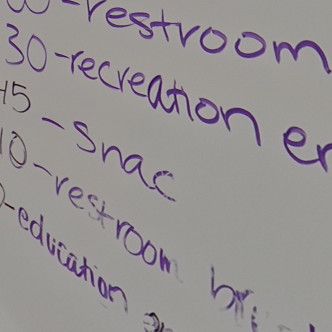 00-restroom
30-recreation
45-snac
10-restroom
-education